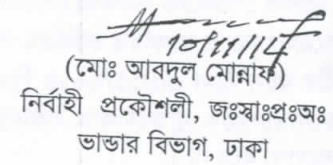 10/11/14
(মোঃ আবদুল মোন্নাফ)
নির্বাহী প্রকৌশলী, জঃস্বাঃপ্রঃঅঃ
ভান্ডার বিভাগ, ঢাকা